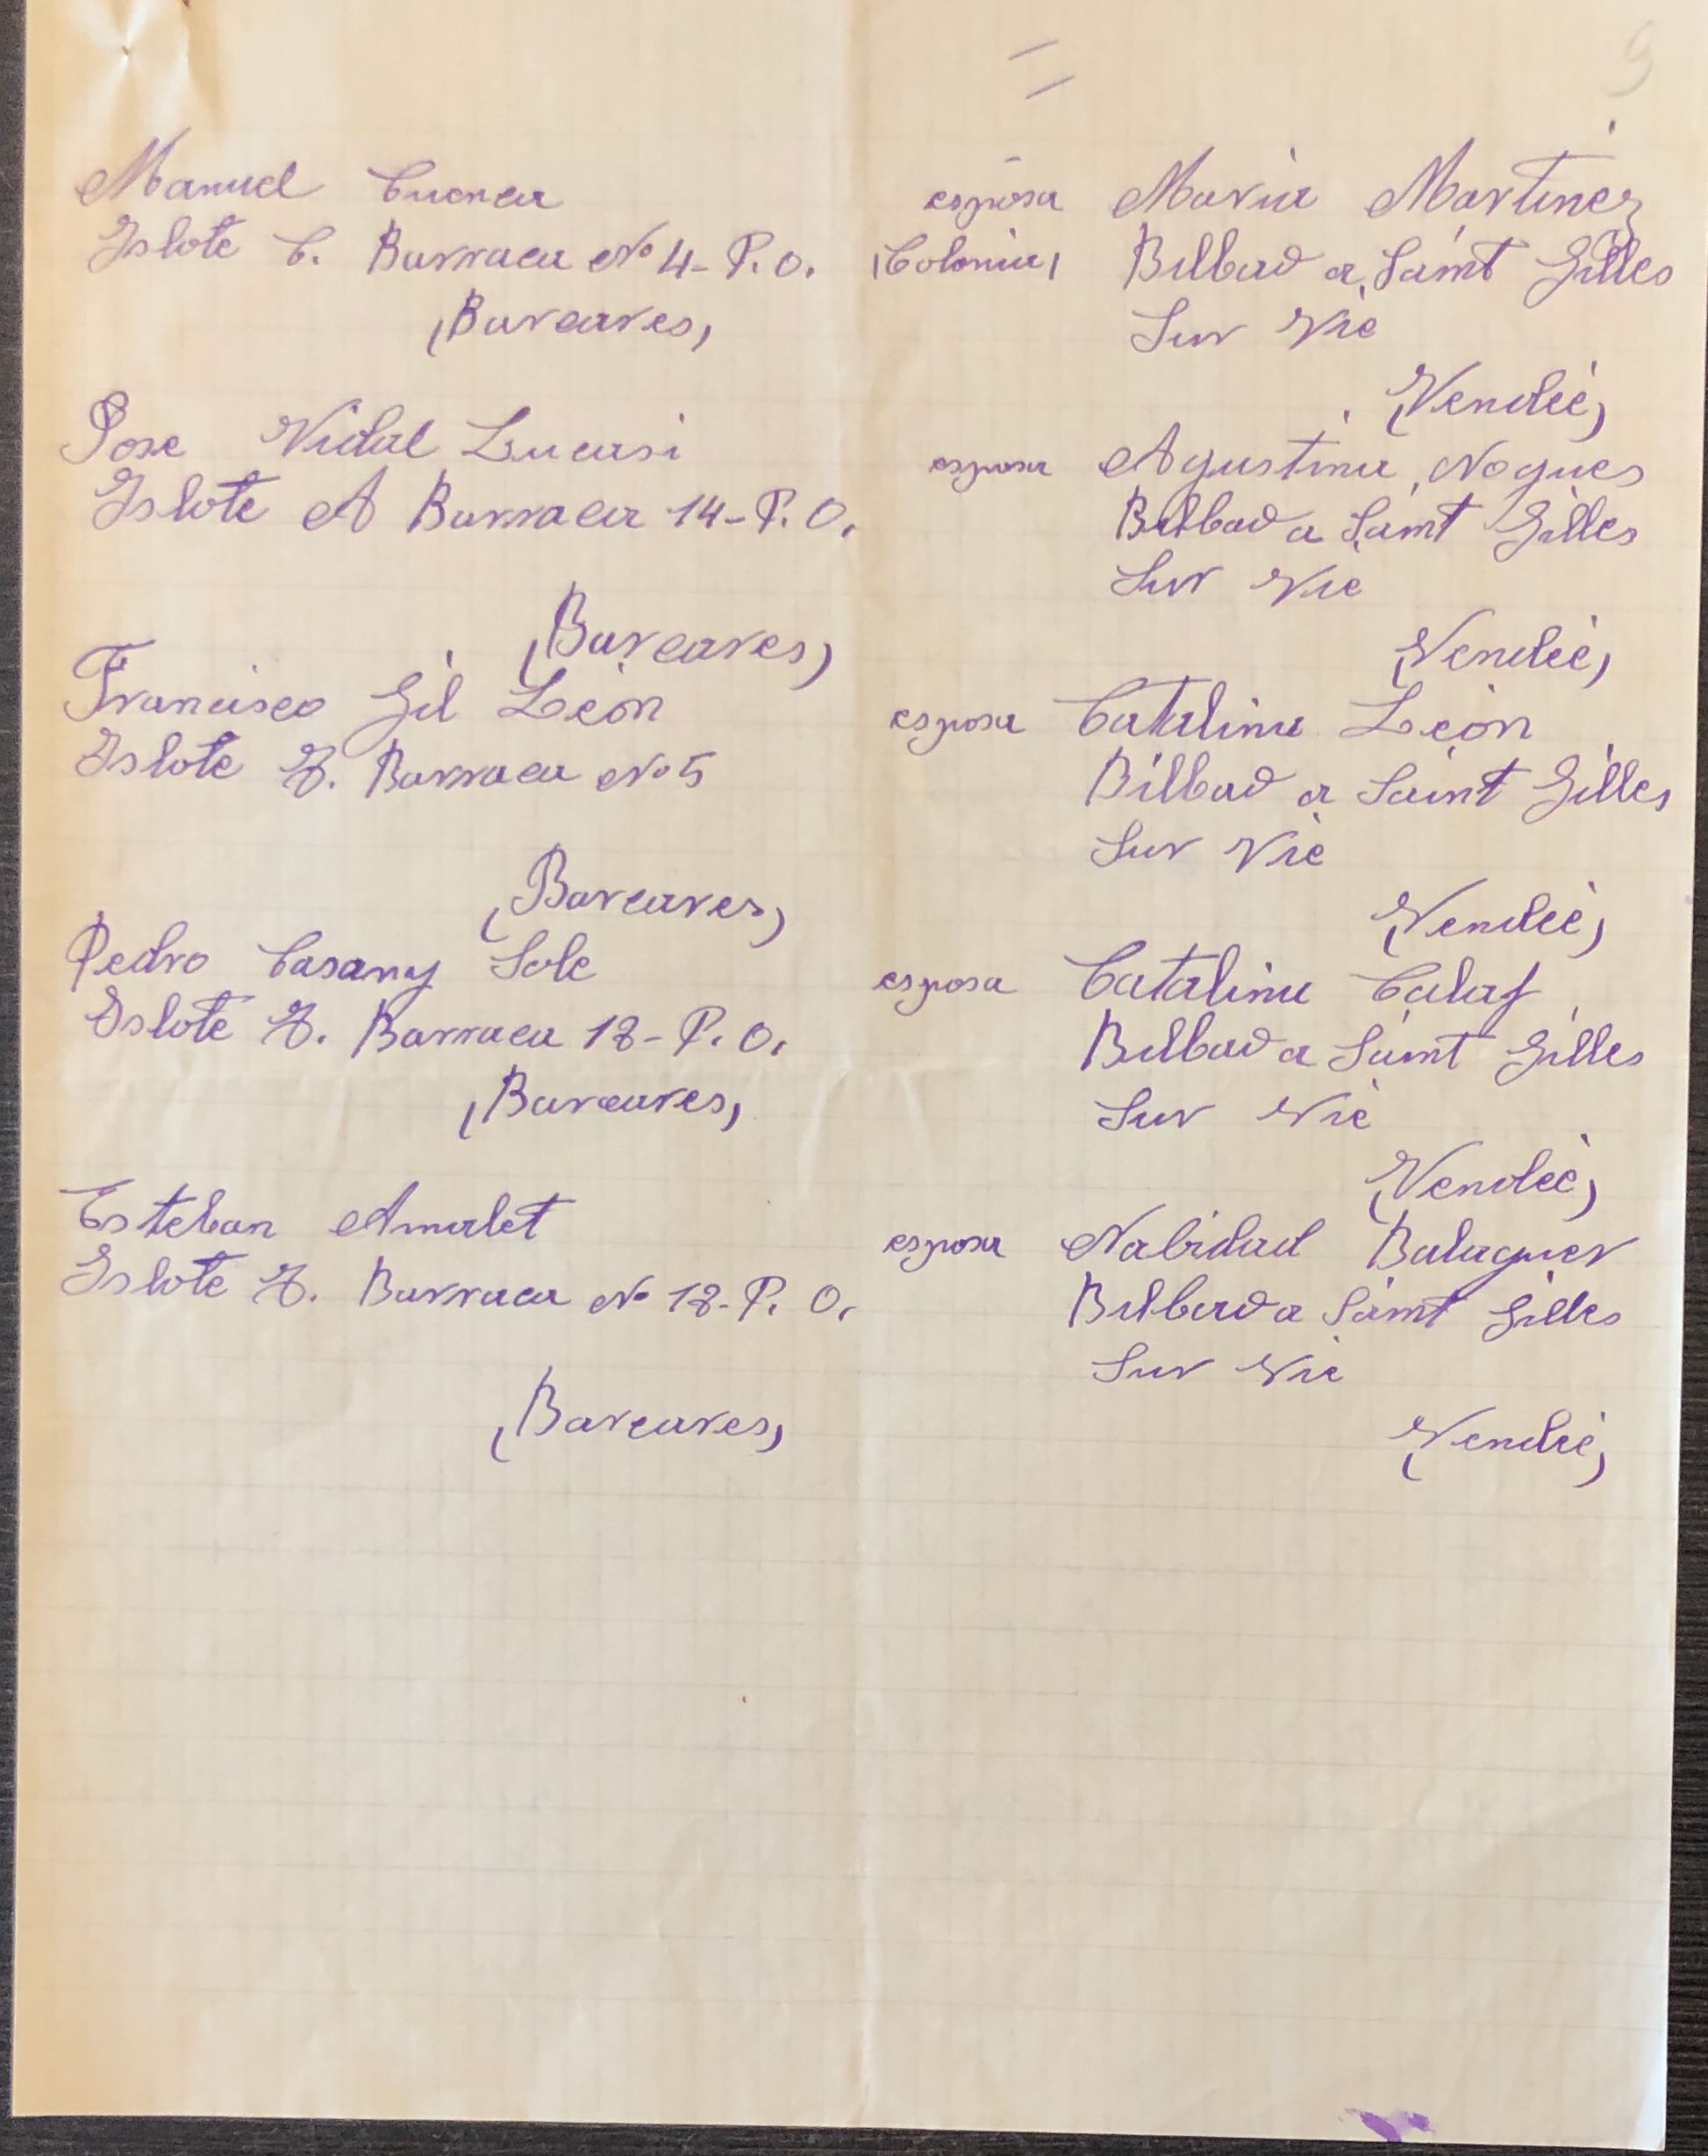 9
Manuel Cuenca
Islote C. Barraca Nº 4- P.O.
(Barcares)
esposa Maria Martinez
(Colonia) Bilbao a Saint Gilles
Sur Vie
(Vendée)
Jose Vidal Lucasi
Islote A Barraca 14- P.O.
(Barcares)
esposa Agustina Nogues
Bilbao a Saint Gilles
Sur Vie
(Vendée)
Francisco Gil León
Islote Barraca Nº 5
(Barcares)
esposa Catalina León
Bilbao a Saint Gilles
Sur Vie
(Vendée)
Pedro Casany Sole
Islote Barraca 18- P.O.
(Barcares)
esposa Catalina Calaf
Bilbao a Saint Gilles
Sur Vie
(Vendée)
Esteban Amalet
Islote Barraca Nº 18- P.O.
(Barcares)
esposa Nabidad Balaguer
Bilbao a Saint Gilles
Sur Vie
(Vendée)